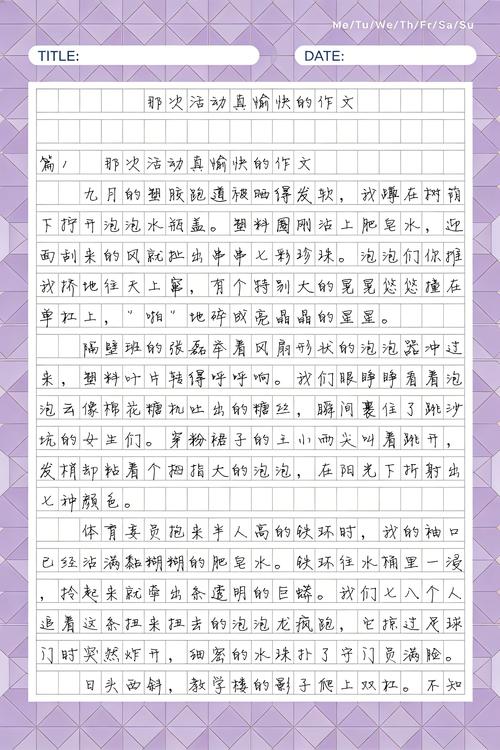 Me/Tu/We/Th/Fr/Sa/Su
TITLE: DATE:
那次活动真愉快的作文
篇1 那次活动真愉快的作文
九月的塑胶跑道被晒得发软，我蹲在树荫
下拧开泡泡水瓶盖。塑料圈刚沾上肥皂水，迎
面刮来的风就扯出串串七彩珍珠。泡泡们你推
我挤地往天上窜，有个特别大的晃晃悠悠撞在
单杠上，"啪"地碎成亮晶晶的星星。
隔壁班的张磊举着风扇形状的泡泡器冲过
来，塑料叶片转得呼呼响。我们眼睁睁看着泡
泡云像棉花糖机吐出的糖丝，瞬间裹住了跳沙
坑的女生们。穿粉裙子的王小雨尖叫着跳开，
发梢却粘着个拇指大的泡泡，在阳光下折射出
七种颜色。
体育委员抱来半人高的铁环时，我的袖口
已经沾满黏糊糊的肥皂水。铁环往水桶里一浸
，拎起来就牵出条透明的巨蟒。我们七八个人
追着这条扭来扭去的泡泡龙疯跑，它掠过足球
门时突然炸开，细密的水珠扑了守门员满脸。
日头西斜，教学楼的影子爬上双杠。不知